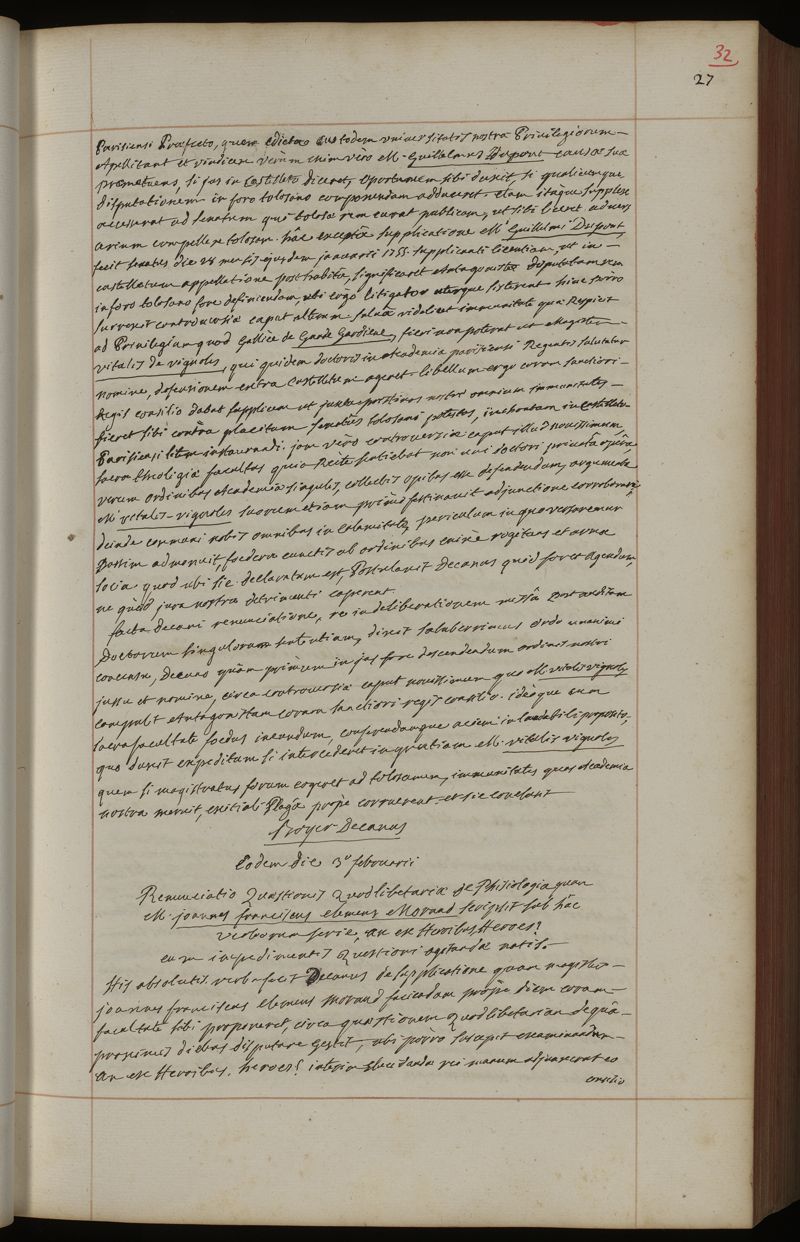 32
27
Parisiensi Praefecto, quem edicta Custodem universitatis nostrae Privilegiorum
Apellitant et vindicem verùm enim vero M. Guillelmus Dupont causae suae
praemetuens, si jus in Castelleto diceret, oportunum sibi duxit, si qualemcunque
disputationem in foro tolosano componendam adduceret. clam itàque supplex
accesserat ad senatum qui tolosae rem curat publicam, ut sibi liceret advers
arium compellere tolosam. hâc exceptâ supplicatione Mi Guillelmi Dupont,
fecit senatus die 28 mensis ejusdem januarii 1755. supplicanti licentiam, ut in
castelletum appellatione posthabita, significaret Antagonistae disputationem
in foro tolosano fore definiendam, ubi ergò litigator uterque sisterent hinc porro
surrexit controversiae caput alterum salva videlicet immunitate quae Respicit
ad Privilegium quod Gallicè de Garde Gardiene, fieri non poterat ut Magister
vitalis de vignoles, qui quidem doctoris in Academia parisiensi Regentis salutatur
nomine, defensionem extra Castelletum ageret. libellum ergo coram sanctiori
Regis consilio dabat supplicem ut juxta pristinas nostri omnium immunitates
fieret sibi contrà placitum senatus tolosani potestas, inchoatam in Castelleto
Parisiensi litem instaurandi. jam verò controversiae caput illud novissimum
sacra theologiae facultas quia Recte sentiebat non uni doctori privatâ operâ,
verum ordinibus Academiae singulis, collectis opibus esse defendendum, argumenta
Mi vitalis vignoles suorum etiam primò festinavit adjunctione corroborare,
deinde communi nobis omnibus in calamitate, periculum in quo versaremur
Passim admonuit, foedera cunctis ab ordinibus enixe rogitans et arma
socia quod ubi sic declaratum est, Postulavit Decanus quid foret agendum,
ne quid jura nostra detrimenti caperent.
facta decani renunciatione, re in deliberationem missâ post auditam
Doctorum singulorum sententiam, dixit saluberrimus ordo unanimi
consensu, Decano quàm primùm in jus fore descendendum ordinis nostri
jussu et nomine, circa controversiae caput novissimum quo M. vitalis vignoles
compulit Antagonistam coram sanctiori regis consilio. ideòque cum
sacra facultate foedus ineundum, conferendamque aciem in laudabili proposito,
quo duxit expeditum si intercederet in gratiam M. vitalis vignoles
quem si magistratus forum cogeret ad tolosanum, immunitates quas Academia
nostra meruit, exitiali Plagâ prope corruerent. et sic conclusit
Boyer Decanus
Eodem die 3a februarii
Renunciatio Quaestionis Quodlibetariae de Phisiologia quam
M. joannes franciscus clemens Morand scripsit sub hâc
verborum serie, an ex Heroibus Heroes?
cum impedimentis Quaestioni agitandae natis.
His absolutis verba fecit Decanus de supplicatione quam magister
joannes franciscus clemens morand faciendam prope diem coram
facultate sibi proponeret, circa quaestionem Quodlibetariam de quâ
proximis diebus disputare gestit, ubi porrò suscepit examinandum
an ex Heroibus, heroes? interim elucidandae rei manum adjuverant eo
consilio